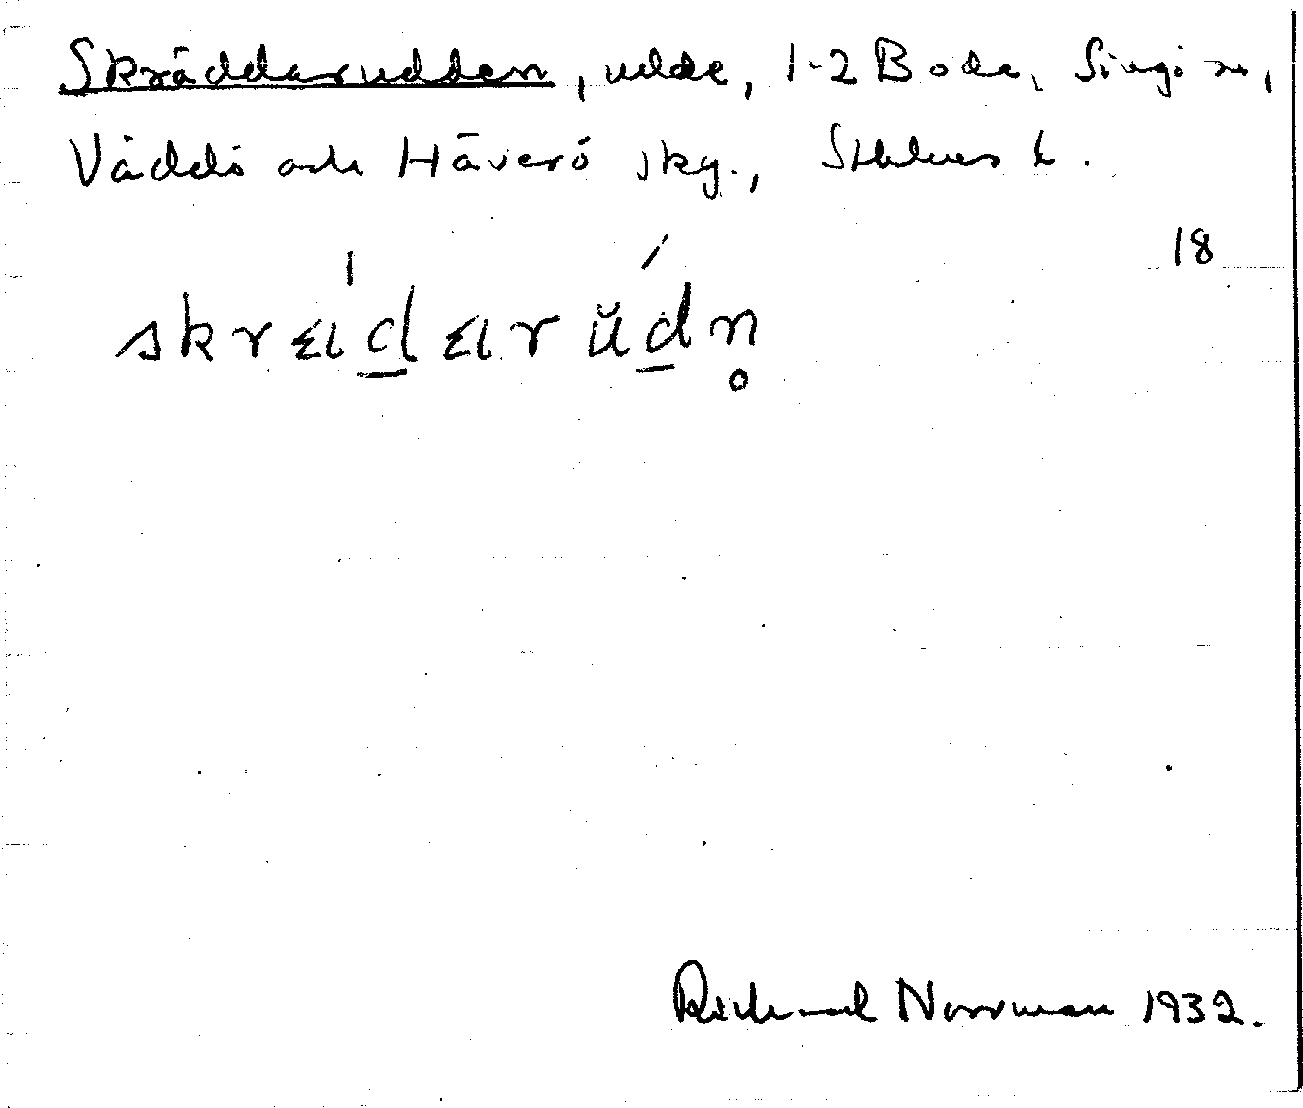 Skräddarudden, udde, 1-2 Boda, Singö sn,
Väddö och Häverö skg., Sthlms l.
18
Richard Norrman 1932.